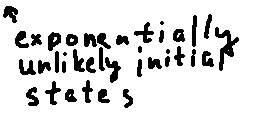 exponentially
unlikely initial
states